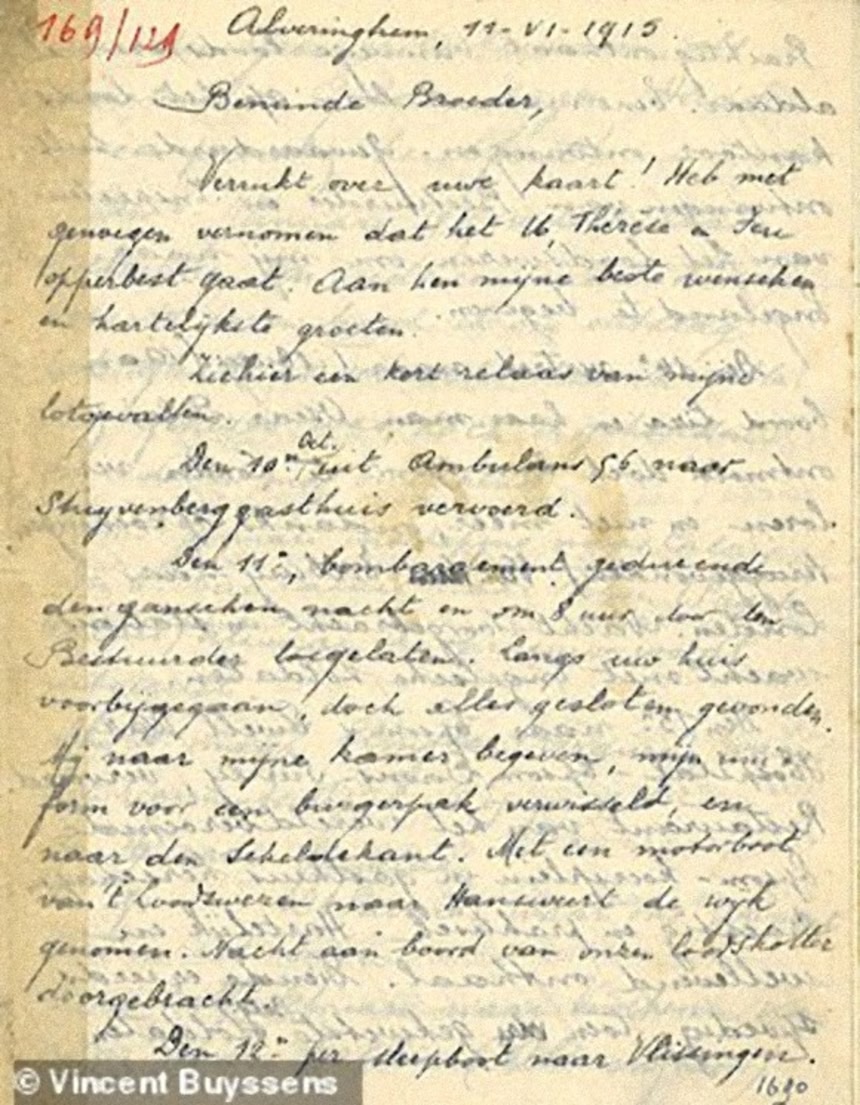 169/121
Alveringhem, 11-VI-1915.
Beminde Broeder,
Verrukt over uwe kaart! Heb met
genoegen vernomen dat het U, Therese en
opperbest gaat. Aan hen mijne beste wenschen
en hartelijkste groeten.
Ziehier een kort relaas van mijne
lotgevallen.
Den 10n Oct. uit Ambulans 56 naar
Stuyvenberggasthuis vervoerd.
Den 11n, bombardement gedurende
den ganschen nacht en om 8 uur door den
Bestuurder losgelaten. Langs uw huis
voorbijgegaan, doch alles gesloten gevonden.
Mij naar mijne kamer begeven, mijn uni-
form voor een burgerpak verwisseld, en
naar den Scheldekant. Met een motorboot
van 't Loodswezen naar Hansweert de wijk
genomen. Nacht aan boord van onzen loodskotter
doorgebracht.
Den 12n per sleepboot naar Vlissingen.
1690
© Vincent Buyssens